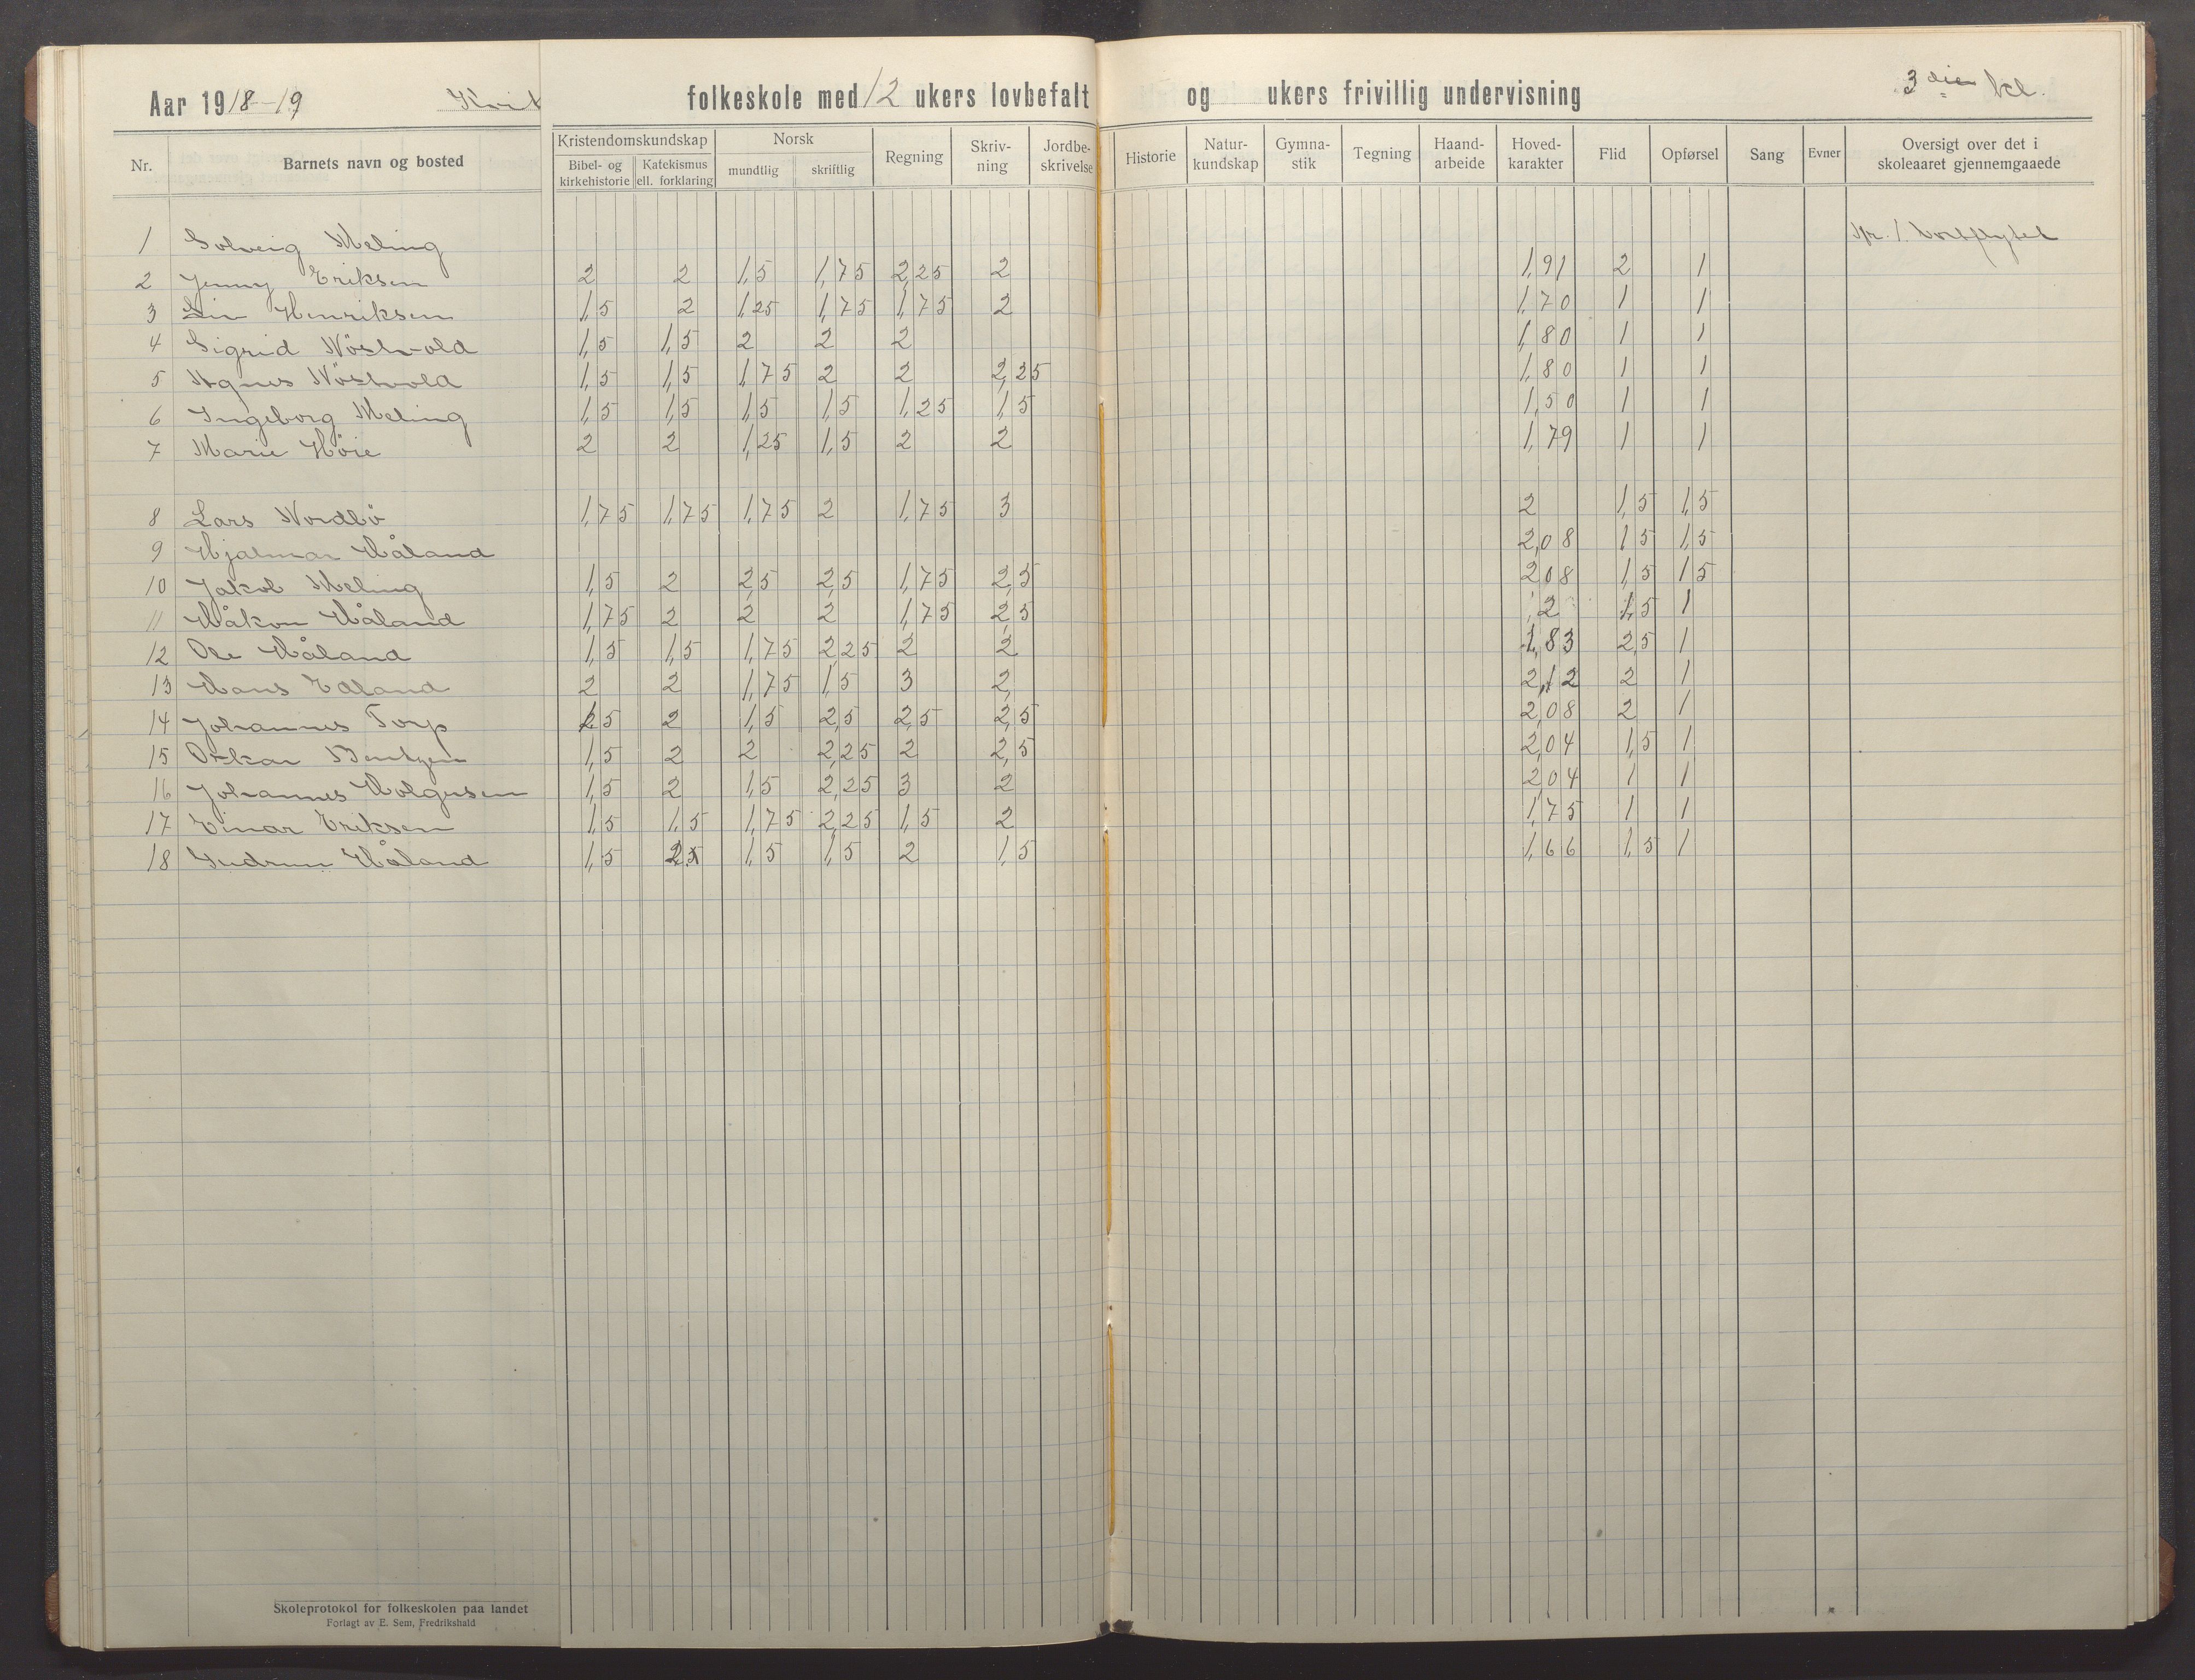 Aar 1918-19 Kvit folkeskole med 12 ukers lovbefalt og ukers frivillig undervisning 3die kl.
Nr. Barnets navn og bosted Kristendomskundskap Bibel- og kirkehistorie Katekismus ell. forklaring Norsk mundtlig skriftlig Regning Skriv-ning Jordbe-skrivelse Historie Natur-kundskap Gymna-stik Tegning Haand-arbeide Hoved-karakter Flid Opførsel Sang Evner Oversigt over det i skoleaaret gjennemgaaede
1 Solveig Meling Nr. 1 bortflyttet
2 Jenny Eriksen 2 2 1,5 1,75 2,25 2 1,91 2 1
3 Henriksen 1,5 2 1,25 1,75 1,75 2 1,70 1 1
4 Sigrid Nöstvold 1,5 1,5 2 2 2 1,80 1 1
5 Agnes Nöstvold 1,5 1,5 1,75 2 2 2,25 1,80 1 1
6 Ingeborg Meling 1,5 1,5 1,5 1,5 1,25 1,5 1,50 1 1
7 Marie Höie 2 2 1,25 1,5 2 2 1,79 1 1
8 Lars Nordbö 1,75 1,75 1,75 2 1,75 3 2 1,5 1,5
9 Hjalmar Håland 2,08 1,5 1,5
10 Jakob Meling 1,5 2 2,5 2,5 1,75 2,5 2,08 1,5 1,5
11 Håkon Håland 1,75 2 2 2 1,75 2,5 2 1,5 1
12 Ole Håland 1,5 1,5 1,75 2,25 2 2 1,83 2,5 1
13 Hans Edland 2 2 1,75 1,5 3 2 2,12 2 1
14 Johannes Torp 2 1,5 2,5 2,5 2,5 2,08 2 1
15 Oskar Bentzen 1,5 2 2 2,25 2 2,5 2,04 1,5 1
16 Johannes Holgersen 1,5 2 1,5 2,25 3 2 2,04 1 1
17 Einar Eriksen 1,5 1,5 1,75 2,25 1,5 2 1,75 1 1
18 Gudrun Håland 1,5 1,5 1,5 2 1,5 1,66 1,5 1
Skoleprotokol for folkeskolen paa landet
Forlagt av E. Sem, Fredrikshald